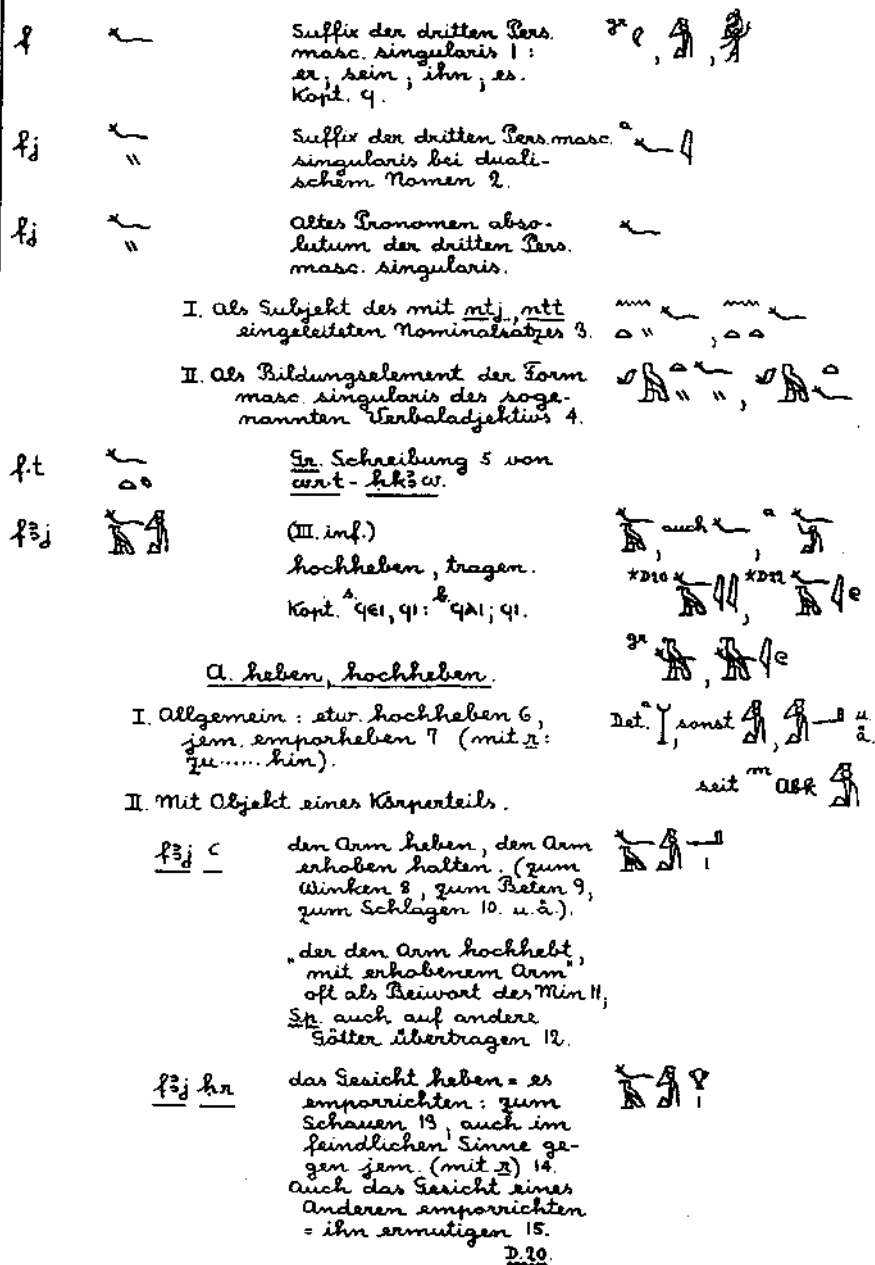 f 𓆑 Suffix der dritten Pers.
masc. singularis 1 :
er; sein; ihn; es.
Kopt. ϥ.
gr 𓏲, 𓀁
fj 𓆑𓏭 Suffix der dritten Pers. masc.
singularis bei duali-
schem Nomen 2.
a 𓆑𓇋
fj 𓆑𓏭 Altes Pronomen abso-
lutum der dritten Pers.
masc. singularis.
𓆑
I. Als Subjekt des mit ntj, ntt
eingeleiteten Nominalsatzes 3.
𓈖𓏏𓏭𓆑, 𓈖𓏏𓏏𓆑
II. Als Bildungselement der Form
masc. singularis des soge-
nannten Verbaladjektivs 4.
f.t 𓆑𓏏 Gr. Schreibung 5 von
wr.t - ḥkꜣw.
fꜣj (III. inf.)
hochheben, tragen.
Kopt. s. ϥⲉⲓ, ϥⲓ : b. ϥⲁⲓ; ϥⲓ.
auch 𓆑, a
*D20 *D22
gr
A. heben, hochheben.
I. Allgemein : etw. hochheben 6,
jem. emporheben 7 (mit r:
zu...... hin).
Det. a, sonst u. ä.
seit m Abk
II. Mit Objekt eines Körperteils.
fꜣj ꜥ den Arm heben, den Arm
erhoben halten. (zum
Winken 8, zum Beten 9,
zum Schlagen 10. u.ä.).
„der den Arm hochhebt,
mit erhobenem Arm“
oft als Beiwort des Min 11,
Sp. auch auf andere
Götter übertragen 12.
fꜣj ḥr das Gesicht heben = es
emporrichten : zum
Schauen 13, auch im
feindlichen Sinne ge-
gen jem. (mit r) 14.
Auch das Gesicht eines
Anderen emporrichten
= ihn ermutigen 15.
D.20.